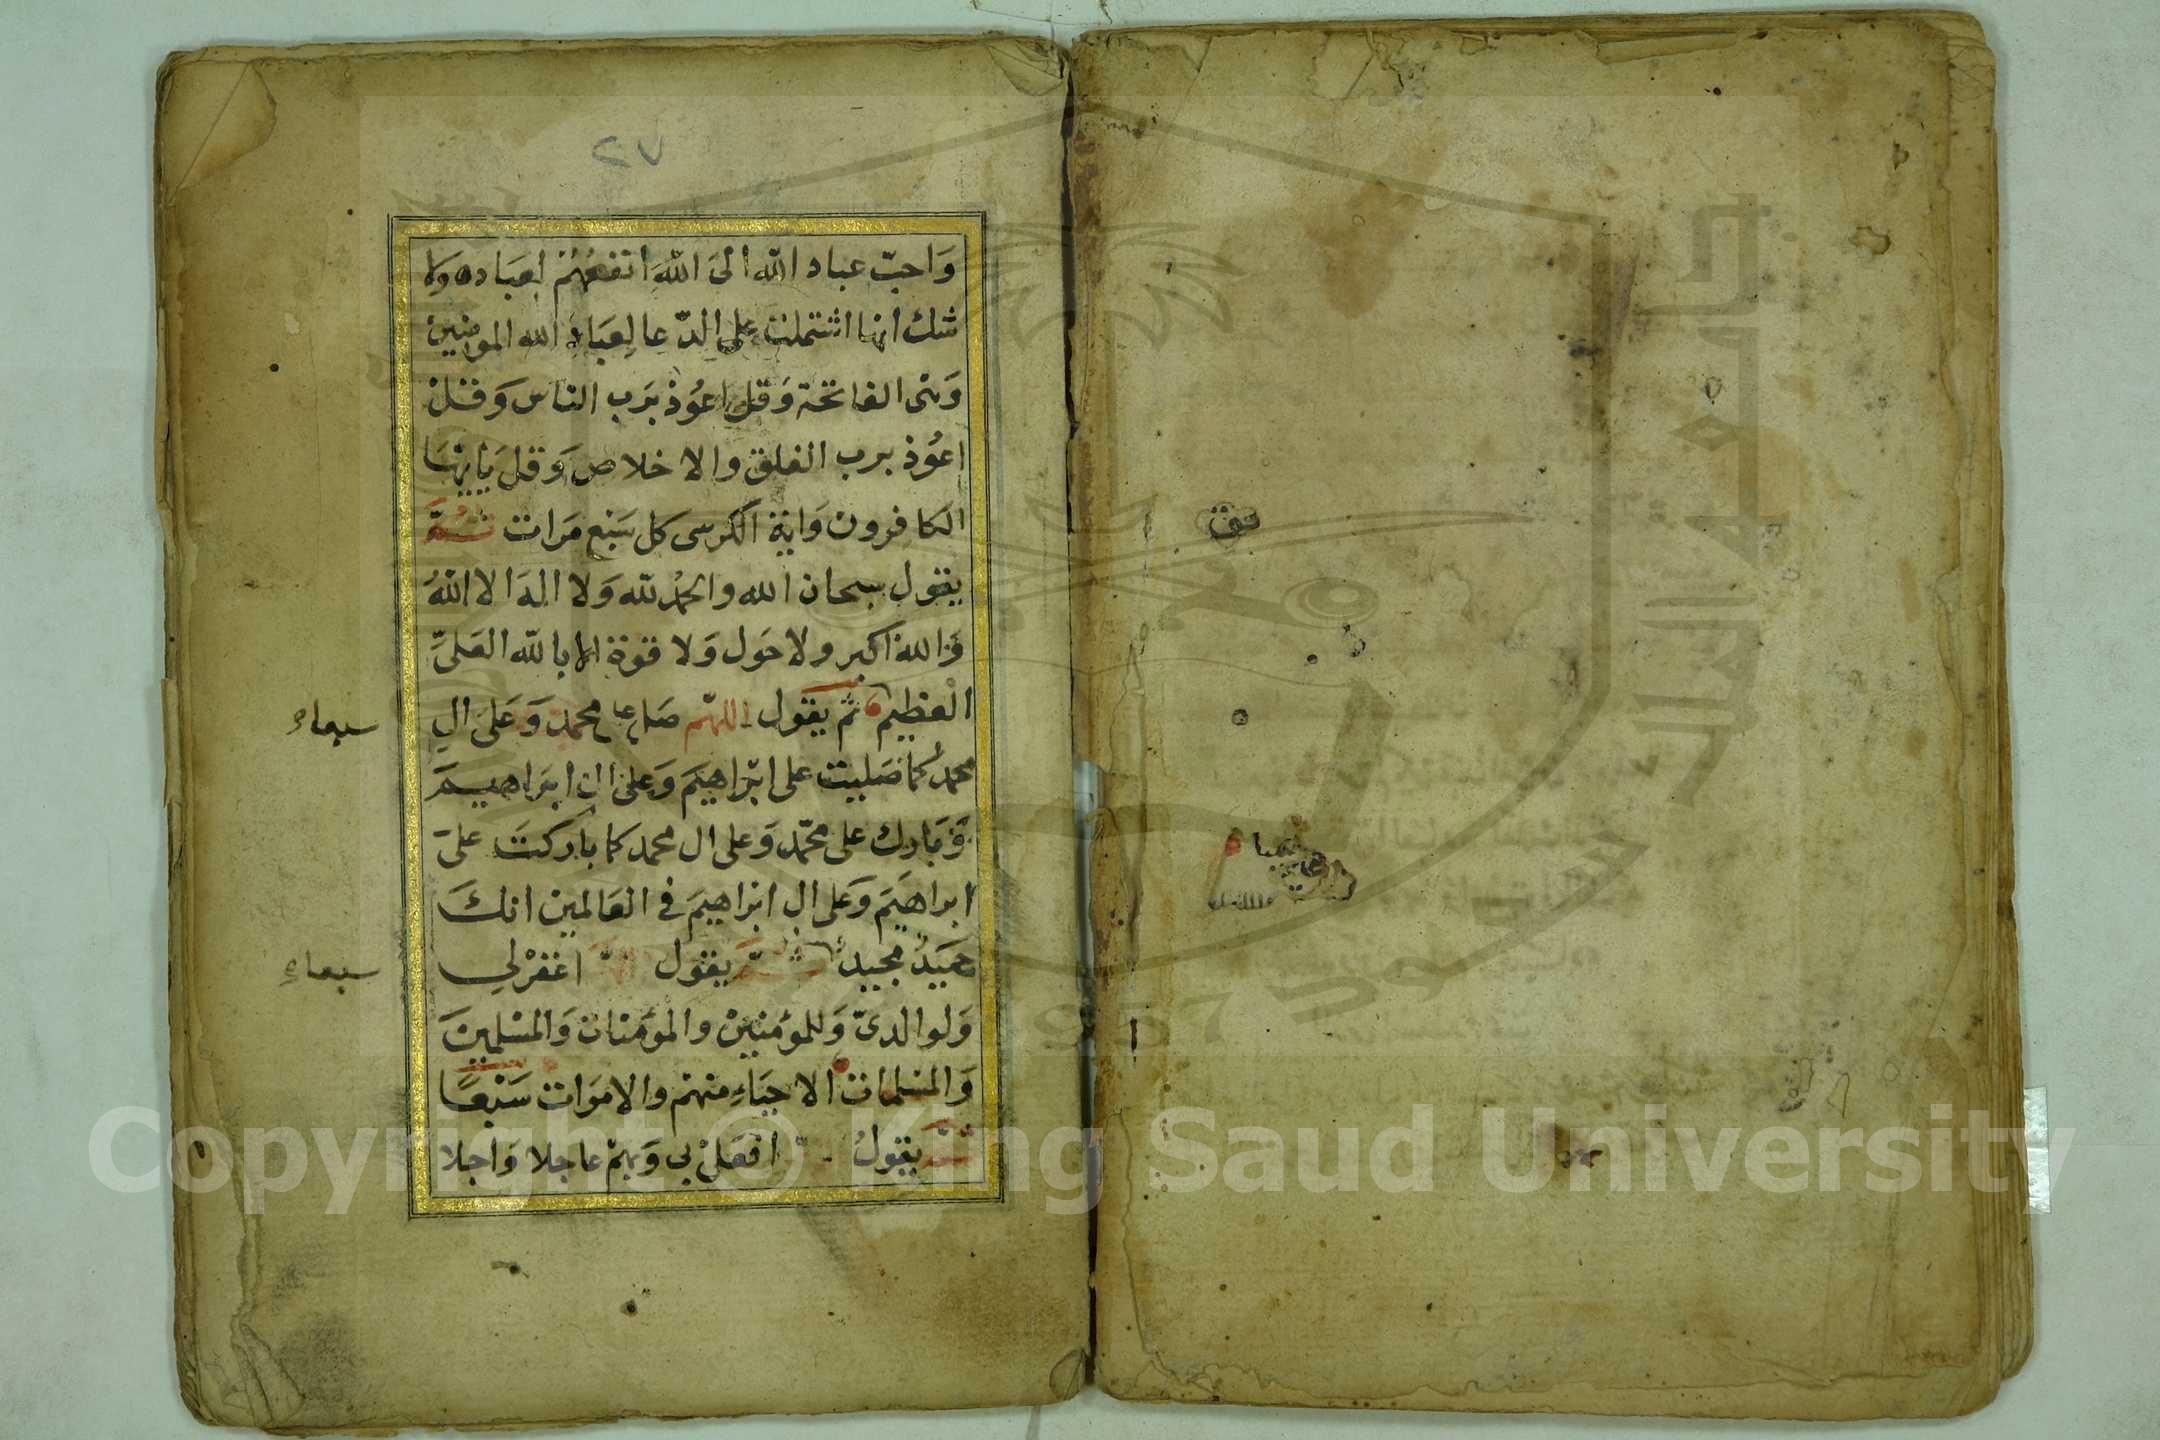 ٢٧
وَاحبّ عباد اللّه الىَ اللّهَ انفعُهُمْ لعبَاده وَلا
شك انها اشتملت على الدّعا لِعبَاد الله المومنِين
وَهْى الفاتحة وَقل اعُوذ بَرَب الناس وَقلْ
اعُوذ برب الفلق والاخلاص وَقل يَايهَا
الكافرون وَاية الكرسى كل سَبْع مَرات ثمَّ
يقول سبحان الله والحمْد للّه وَلا اله الا اللّهُ
وَالله اكبر ولا حَول وَلا قوة الا باللّه العَلىِّ
العَظيم ثم يقول اللهّم صَل على محمد وَعَلىَ الِ
محمدُ كما صَليت على ابْراهيَم وَعلى الِ ابَراهيم
وَبَارك على محّمد وَعلى ال محمد كما باركتَ علىَ
ابراهيَم وَعَلى الِ ابْراهيَم فى العَالمين انكَ
حمَيدُ مجيد ثم يقول اغفرْلى
وَلوالدىّ وَللمومنيِنْ والموَمنات وَالمسْلمينَ
وَالمسْلمات الاحيَاءِ منهمْ والامَوات سَبْعًا
ثم يقولْ افعَلْ بى وَبهمْ عاجلا وَاجلا
سبعاء
سبعاء
Copyright © King Saud University
1957